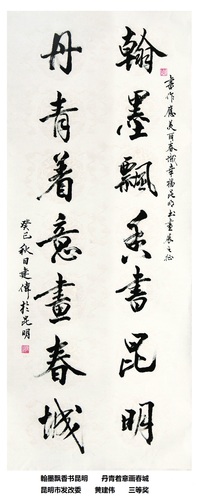 书作应美丽春城幸福昆明书画展之征
翰墨飘香书昆明
丹青着意畫春城
癸巳秋日建偉於昆明
翰墨飘香书昆明 丹青着意画春城
昆明市发改委 黄建伟 三等奖